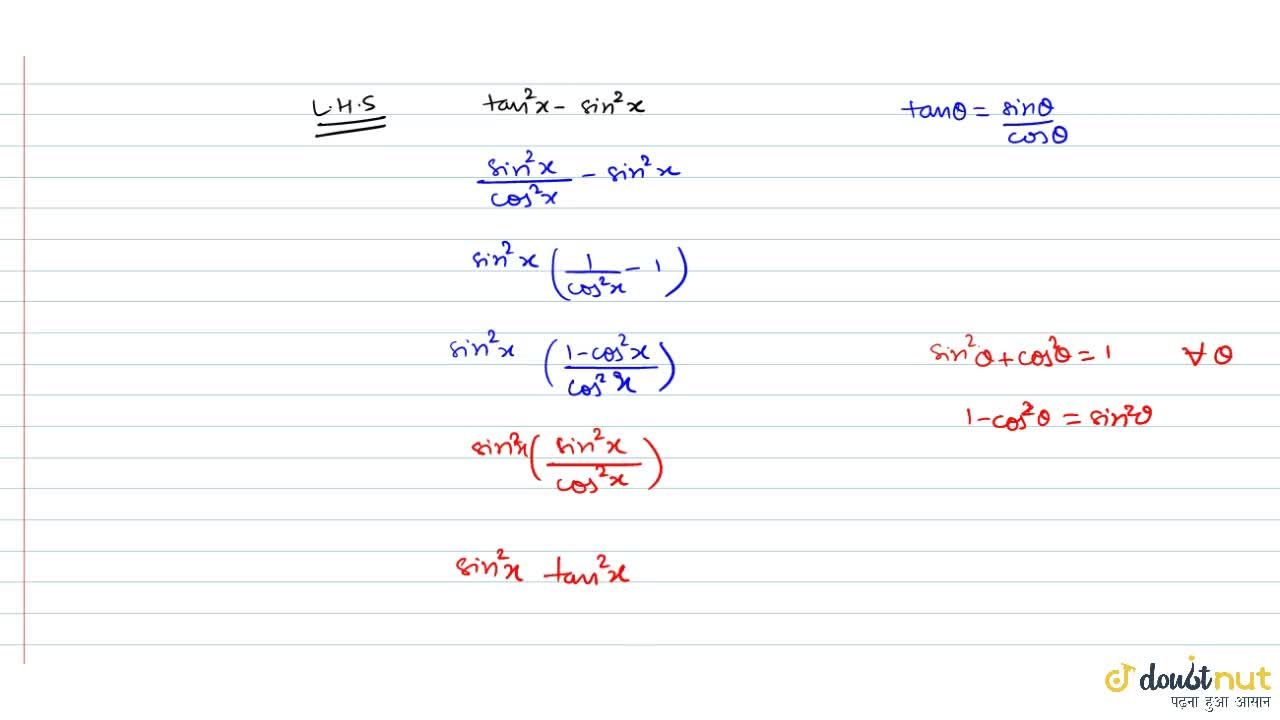 L.H.S tan²x - sin²x tanθ = sinθ/cosθ
sin²x/cos²x - sin²x
sin²x (1/cos²x - 1)
sin²x (1-cos²x/cos²x) sin²θ+cos²θ=1 ∀ θ
1-cos²θ = sin²θ
sin²x (sin²x/cos²x)
sin²x tan²x
doubtnut
पढ़ना हुआ आसान